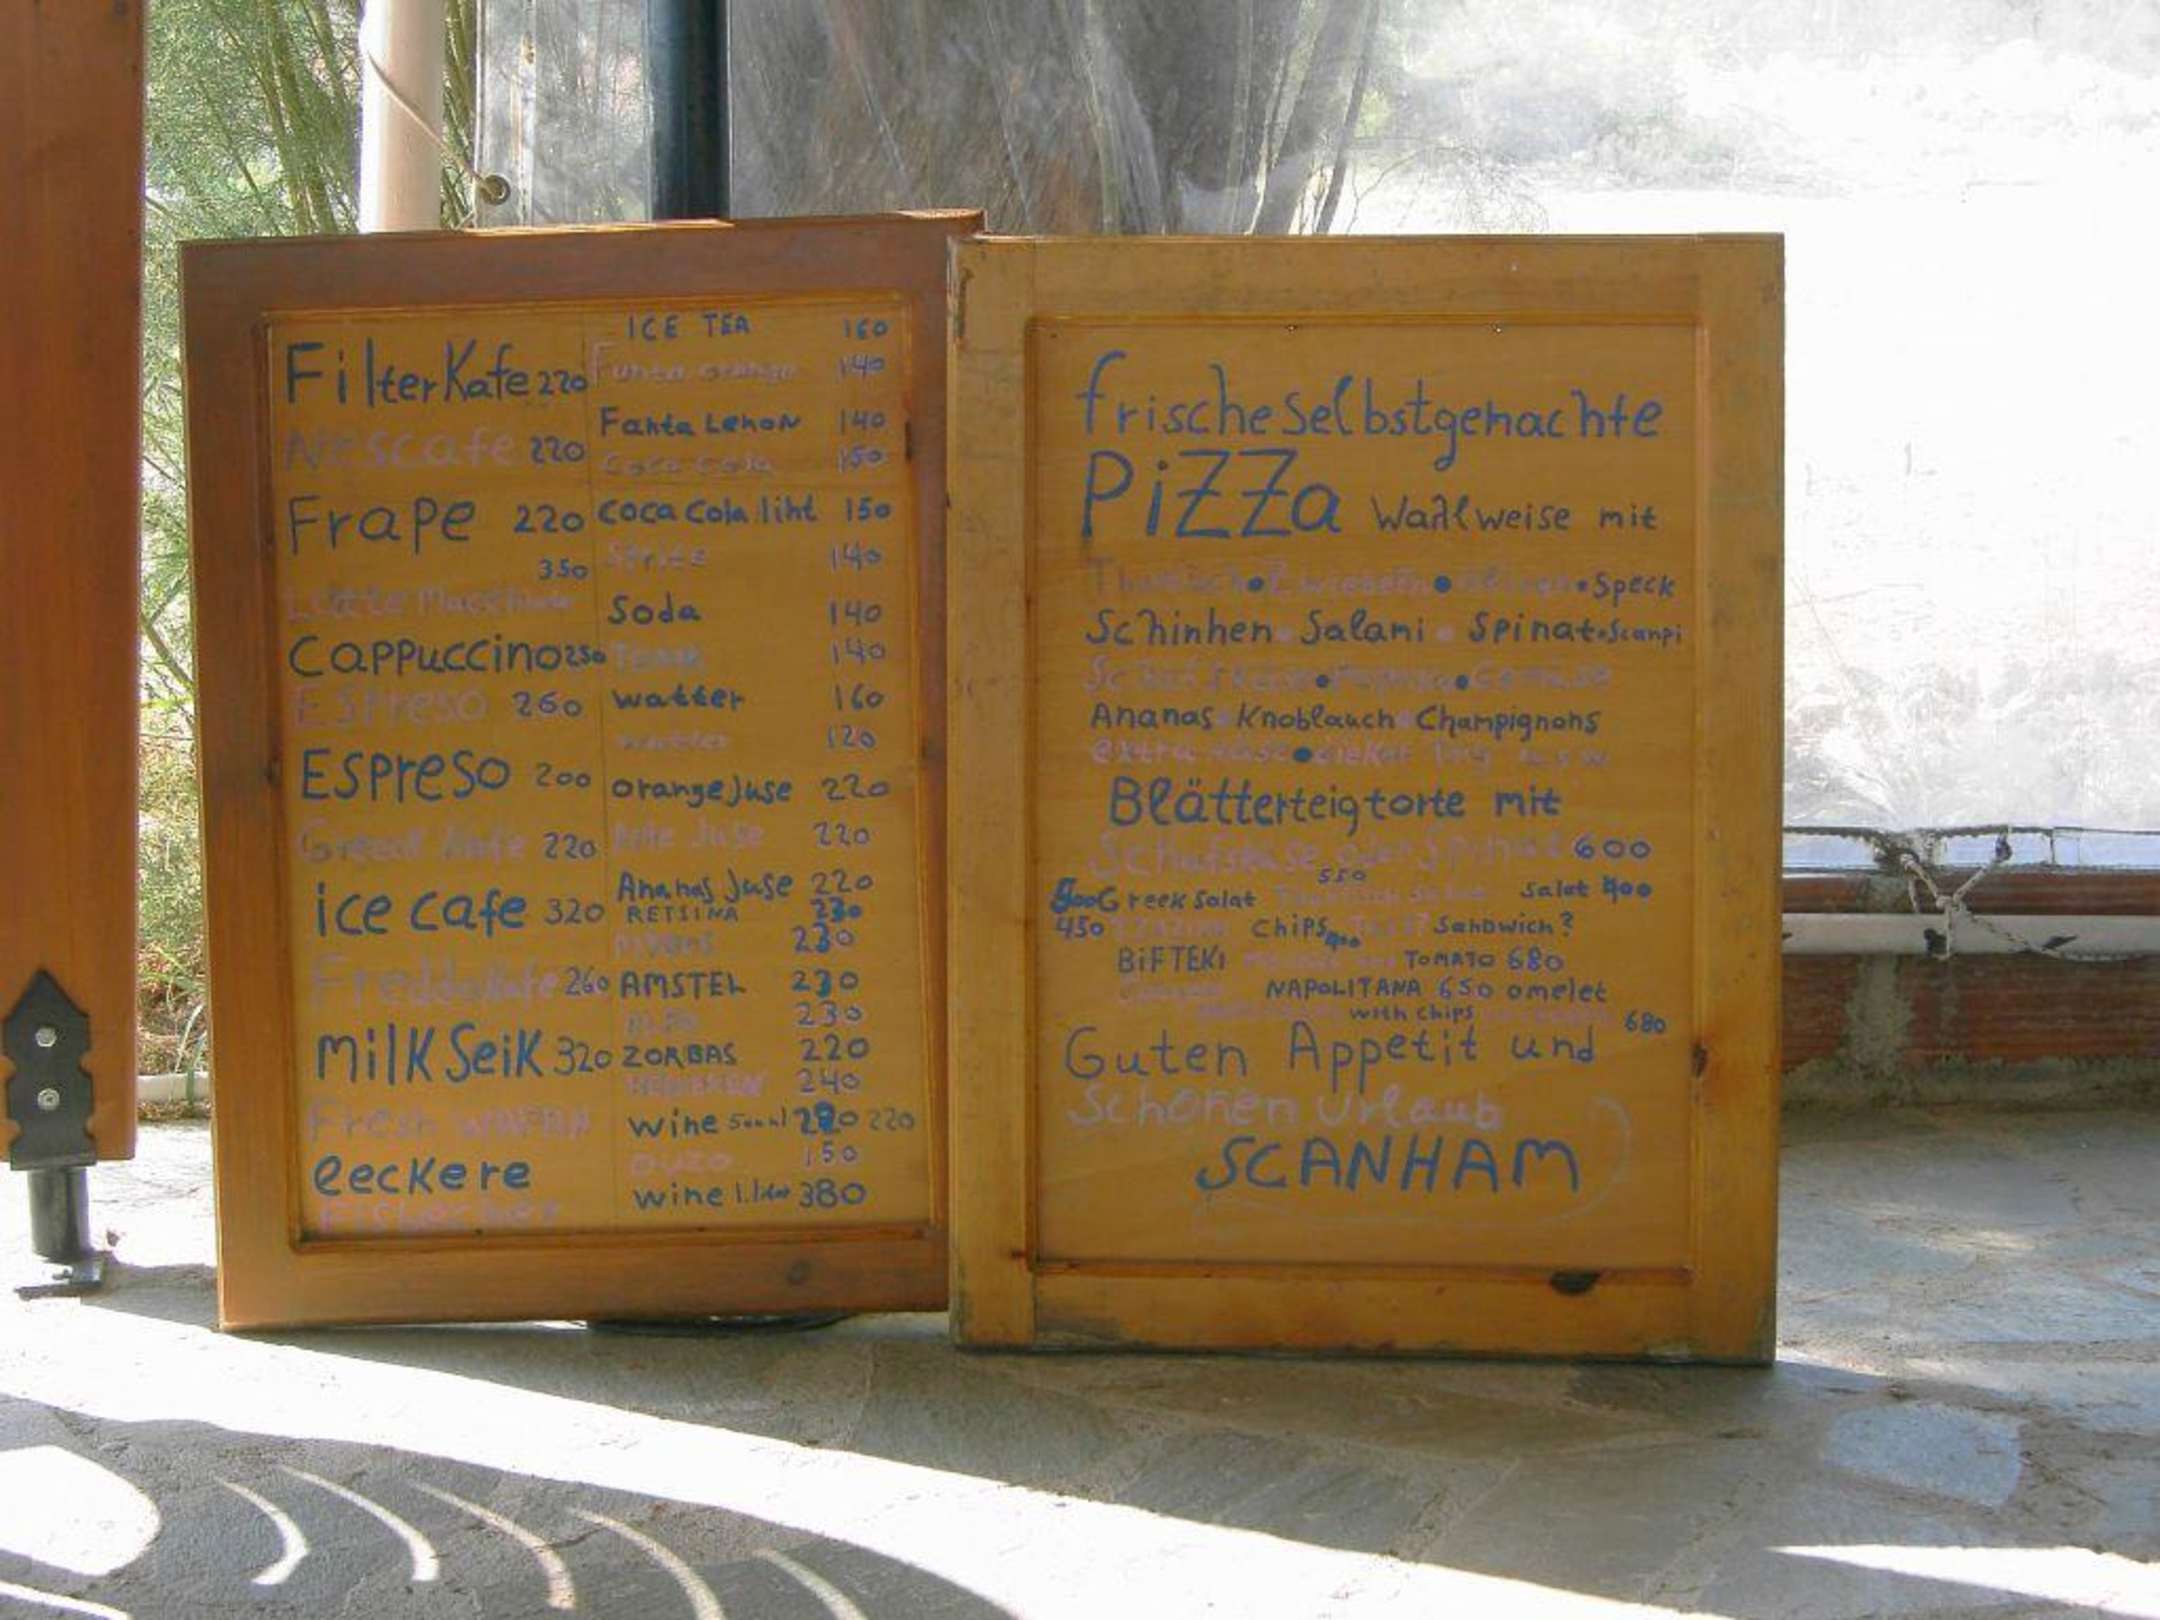 Filter Kafe 220
Nescafe 220
Frape 220
350
Latte Macchiato
Cappuccino 250
Espreso 260
Espreso 200
Greek Kafe 220
ice cafe 320
Freddo Kafe 260
milk Seik 320
Fresh
leckere
Eisbecher
ICE TEA 160
Funta orange 140
Fanta Lemon 140
Coca Cola 150
coca Cola liht 150
Sprite 140
Soda 140
Tonik 140
watter 160
watter 120
orange Juse 220
Juse 220
Ananas Juse 220
RETSINA 230
230
AMSTEL 230
230
ZORBAS 220
240
wine 220 220
ouzo 150
wine 380
frische selbstgemachte
PiZZa Wahlweise mit
Zwiebeln • • Speck
Schinken • Salami • Spinat • Scampi
Schafskäse • • Gemüse
Ananas • Knoblauch • Champignons
extra Käse •
Blätterteigtorte mit
Schafskäse oder Spinat 600
550
500 Greek Salat Salat 400
450 Chips 400 Sandwich?
BiFTEKi TOMATO 680
NAPOLITANA 650 omelet
with chips 680
Guten Appetit und
Schönen Urlaub
SCANHAM